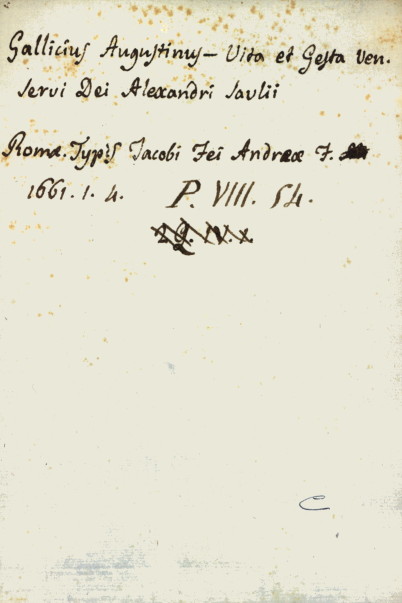 Gallicius Augustinus – Vita et Gesta ven.
servi Dei Alexandri Saulii
Romæ. Typis Jacobi Fei Andreæ F.
1661. 1. 4. P. VIII. 54.
C